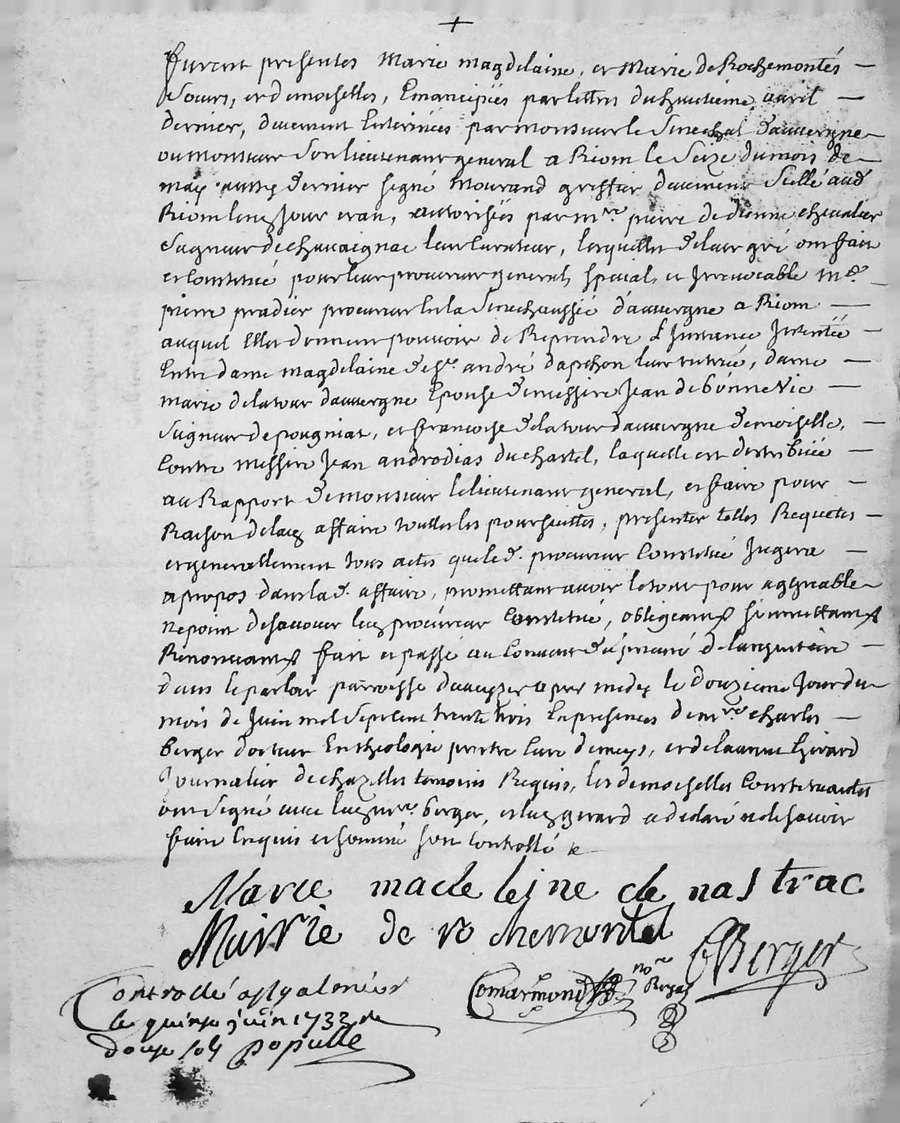 furent presentes Marie magdelaine, et Marie de Rochemontés
sœurs, et demoiselles, Emancipées par lettres du huitieme avril
dernier, duement Enterinées par monsieur le Senechal d'auvergne
ou monsieur son lieutenant general a Riom le seize du mois de
may dernier signé Mourand greffier duement scellé aud
Riom led jour et an, autorisées par mre pierre de dienne chevalier
Seigneur de chavaignac leur curateur, lesquelles de leur gré ont fait
et constitué pour leur procureur general, special, et Irrevocable me
pierre pradier procureur En la Senechaussée d'auvergne a Riom
auquel Elles donnent pouvoir de Reprendre l'Instance Intentée
Entre dame magdelaine de st andré dapchon leur tutrice, dame
marie de latour dauvergne Epouse de messire Jean de bonnevie
Seigneur de pougniat, et francoise de latour dauvergne demoiselle,
contre messire Jean androdias du chastel, laquelle est distribuée
au Rapport de monsieur le lieutenant general, et faire pour
Raison de lad affaire touttes les poursuittes, presenter telles Requetes
et generallement tous actes que led procureur constitué Jugera
apropos dans lad affaire, promettant avoir le tout pour agreable
ne point desavouer led procureur constitué, obligeants soumettants
Renonceants fait et passé au Convent de
dans le parloir parroisse apres midy le douzieme Jour du
mois de Juin mil sept cent trente trois En presences de mre charles
berger docteur En theologie pretre curé et de
Journalier de chazelles temoins Requis, les demoiselles constituantes
ont signé avec led mre berger, et led gerard a declaré ne le scavoir
faire Enquis et sommé soit controllé
Marie madeleine de nastrac
Marie de rochemontel
CBerger
Comarmond nore Royal
Controllé a St galmier
le quinse juin 1733 Re
douse sols populle